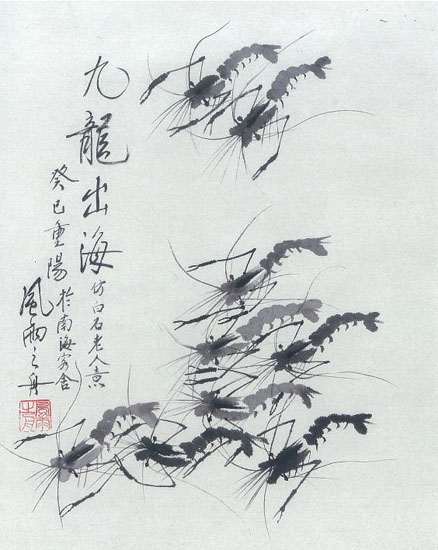 九龍出海
仿白石老人意
癸巳重陽
於南海客舍
風雨之舟